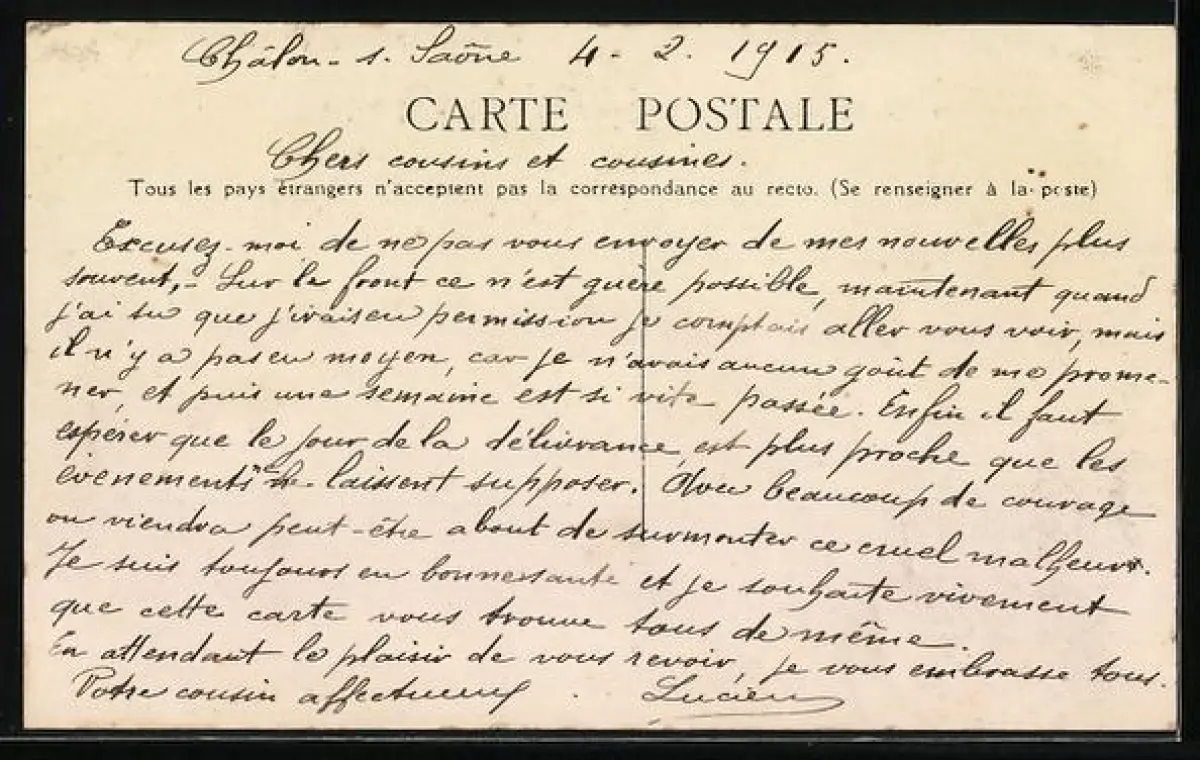 Châlon-s. Saône 4-2. 1915.
CARTE POSTALE
Chers cousins et cousines.
Tous les pays étrangers n'acceptent pas la correspondance au recto. (Se renseigner à la poste)
Excusez-moi de ne pas vous envoyer de mes nouvelles plus
souvent, - Sur le front ce n'est guère possible, maintenant quand
j'ai su que j'irais en permission je comptais aller vous voir, mais
il n'y a pas eu moyen, car je n'avais aucun goût de me prome-
ner, et puis une semaine est si vite passée. Enfin il faut
espérer que le jour de la délivrance est plus proche que les
évenements ne laissent supposer. Avec beaucoup de courage
on viendra peut-être about de surmonter ce cruel malheur.
Je suis toujours en bonne santé et je souhaite vivement
que cette carte vous trouve tous de même.
En attendant le plaisir de vous revoir, je vous embrasse tous.
Votre cousin affectueux. Lucien